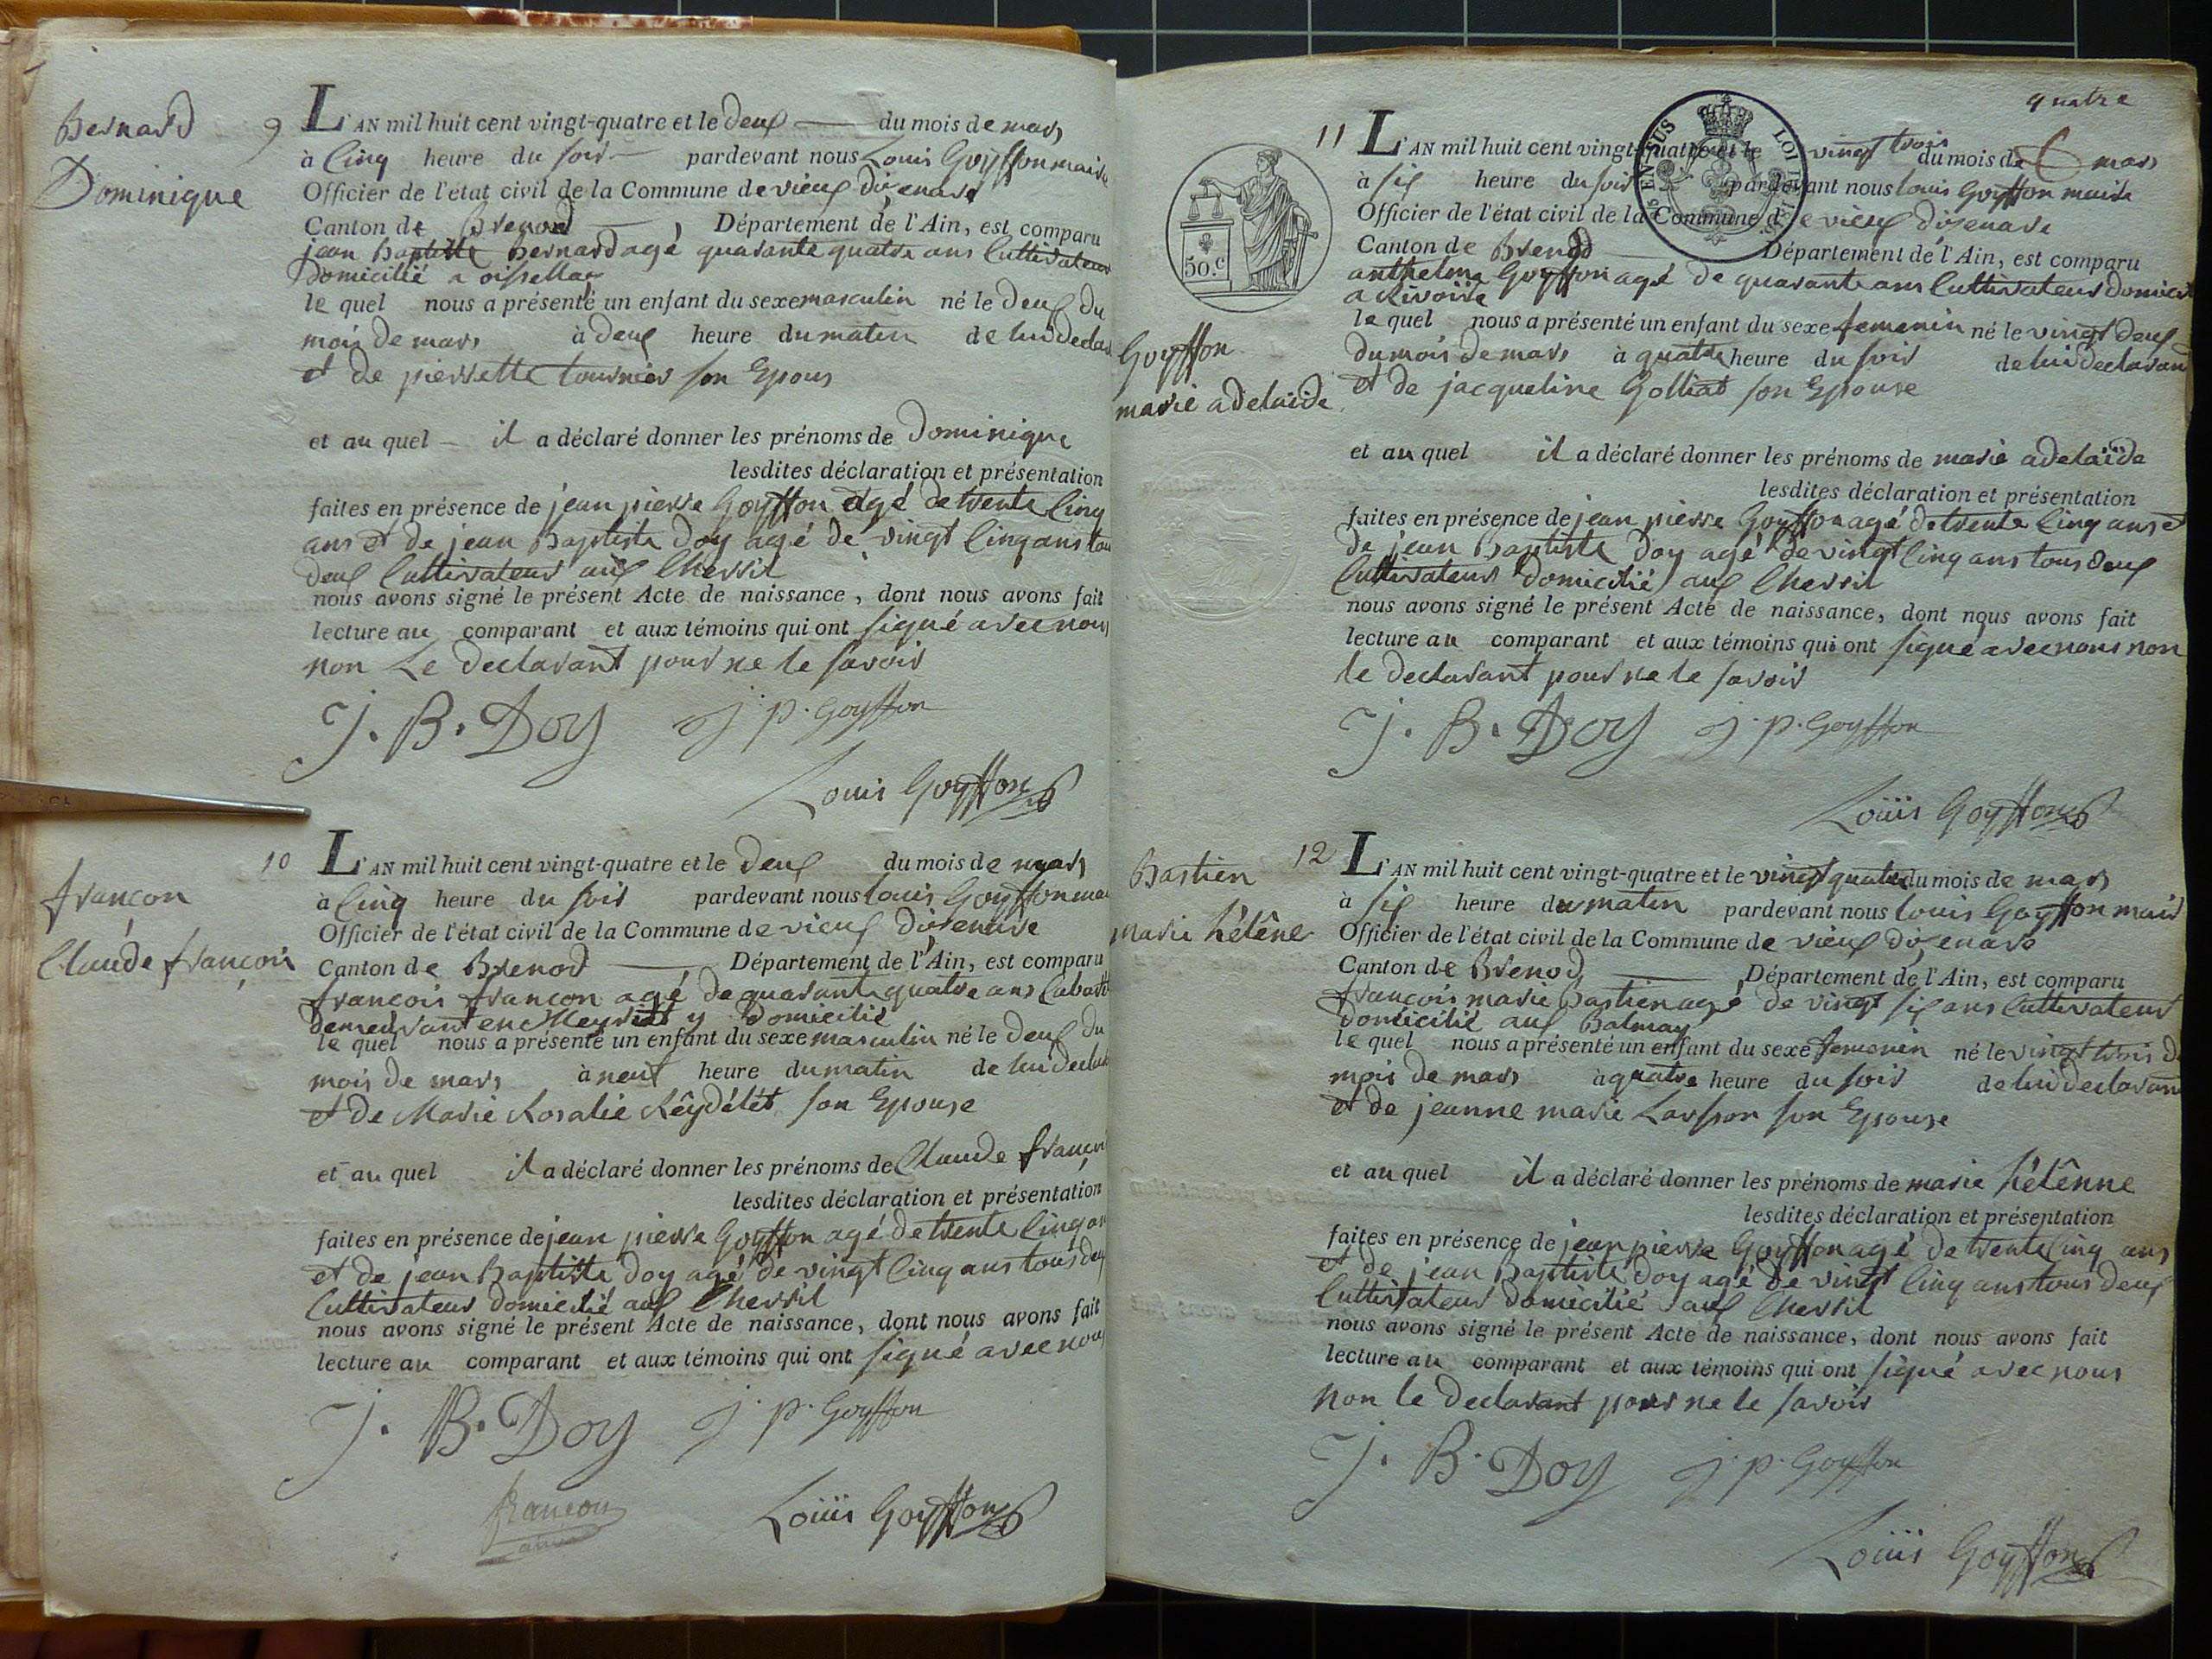 Bernard
Dominique
9
L'AN mil huit cent vingt-quatre et le deux du mois de mars
à Cinq heure du soir pardevant nous Louis Goyffon maire
Officier de l'état civil de la Commune de vieux d'izenave
Canton de Brenod Département de l'Ain, est comparu
jean Baptiste Bernard agé quarante quatre ans Cultivateur
domicilié a oissellaz
le quel nous a présenté un enfant du sexe masculin né le deux du
mois de mars à deux heure du matin de lui declar
et de pierrette tournier son Epous
et au quel il a déclaré donner les prénoms de Dominique
lesdites déclaration et présentation
faites en présence de jean pierre Goyffon agé de trente Cinq
ans et de jean Baptiste Doy agé de vingt Cinq ans tou
deux Cultivateur aux Chevril
nous avons signé le présent Acte de naissance, dont nous avons fait
lecture au comparant et aux témoins qui ont signé avec nous
non Le declarant pour ne le savoir
J. B. Doy j. p. Goyffon
Louis Goyffon
françon
Claude françois
10
L'AN mil huit cent vingt-quatre et le deux du mois de mars
à Cinq heure du soir pardevant nous Louis Goyffon mai
Officier de l'état civil de la Commune de vieux d'izenave
Canton de Brenod Département de l'Ain, est comparu
françois françon agé de quarante quatre ans Cabar
demeurant en Meyriat y domicilié
le quel nous a présenté un enfant du sexe masculin né le deux du
mois de mars à neuf heure du matin de lui declar
et de Marie Rosalie Rêydélét son Epouse
et au quel il a déclaré donner les prénoms de Claude françoi
lesdites déclaration et présentation
faites en présence de jean pierre Goyffon agé de trente Cinq an
et de jean Baptiste Doy agé de vingt Cinq ans tous deux
Cultivateur domicilié aux Chevril
nous avons signé le présent Acte de naissance, dont nous avons fait
lecture au comparant et aux témoins qui ont signé avec nous
J. B. Doy j. p. Goyffon
françon
Louis Goyffon
quatre
LOI
50.c
11
Goyffon
marie adelaïde
L'AN mil huit cent vingt-quatre et le vingt trois du mois de mars
à six heure du soir pardevant nous Louis Goyffon maire
Officier de l'état civil de la Commune de vieux d'izenave
Canton de Brenod Département de l'Ain, est comparu
anthelme Goyffon agé de quarante ans Cultivateur domicil
a Rivoire
le quel nous a présenté un enfant du sexe femenin né le vingt deux
du mois de mars à quatre heure du soir de lui declarant
et de jacqueline Golliat son Epouse
et au quel il a déclaré donner les prénoms de marie adelaïde
lesdites déclaration et présentation
faites en présence de jean pierre Goyffon agé de trente Cinq ans et
de jean Baptiste Doy agé de vingt Cinq ans tous deux
Cultivateurs domicilié aux Chevril
nous avons signé le présent Acte de naissance, dont nous avons fait
lecture au comparant et aux témoins qui ont signé avec nous non
le declarant pour ne le savoir
J. B. Doy j. p. Goyffon
Louis Goyffon
Bastien
marie hélêne
12
L'AN mil huit cent vingt-quatre et le vingt quatre du mois de mars
à six heure du matin pardevant nous Louis Goyffon maire
Officier de l'état civil de la Commune de vieux d'izenave
Canton de Brenod Département de l'Ain, est comparu
françois marie Bastien agé de vingt six ans Cultivateur
domicilié aux Balmay
le quel nous a présenté un enfant du sexe femenin né le vingt trois d
mois de mars à quatre heure du soir de lui declarant
et de jeanne marie son Epouse
et au quel il a déclaré donner les prénoms de marie hélênne
lesdites déclaration et présentation
faites en présence de jean pierre Goyffon agé de trente Cinq ans
et de jean Baptiste Doy agé de vingt Cinq ans tous deux
Cultivateur domicilié aux Chevril
nous avons signé le présent Acte de naissance, dont nous avons fait
lecture au comparant et aux témoins qui ont signé avec nous
non le declarant pour ne le savoir
J. B. Doy j. p. Goyffon
Louis Goyffon